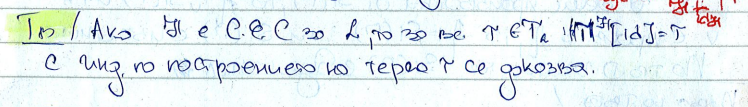 Тв / Ако H е С.Е.С за L, то за вс. τ ∈ T_L ‖τ‖^H [id] = τ
с инд. по построението на терма τ се доказва.